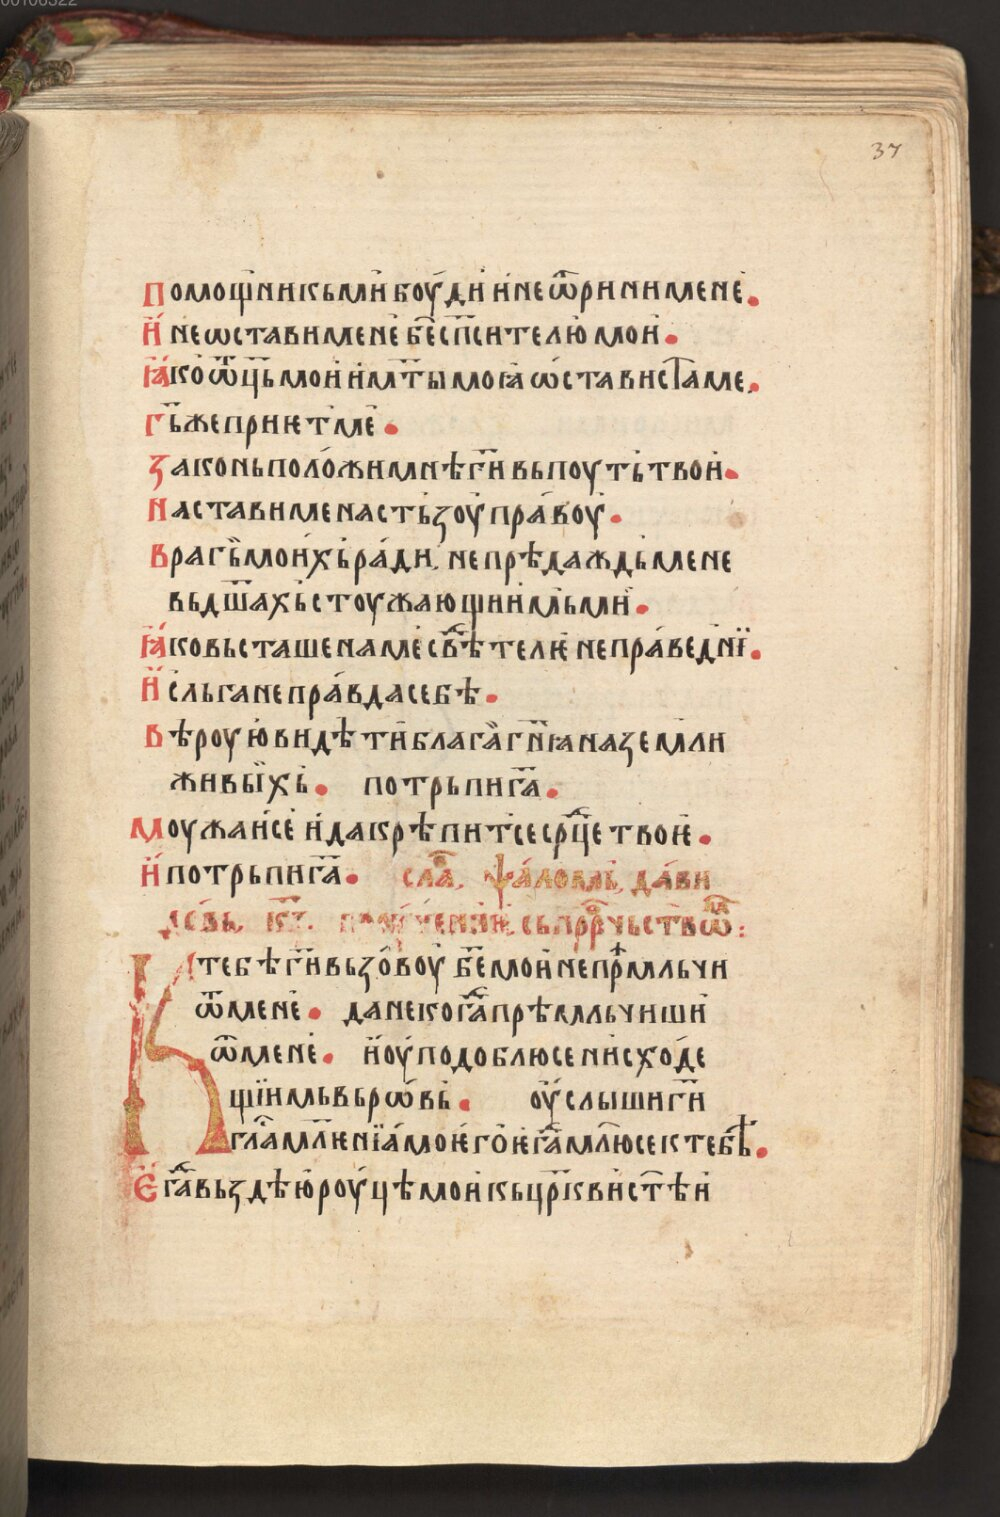 00106322
37
помощникь ми боуди и не ѿрини мене.
И не ѡстави мене бе спсителю мои.
Ꙗко ѿць мои и мти моꙗ ѡстависта ме.
Гь же приѥт ме.
Законь положи мнѣ ги вь поуть твои.
Настави ме на стьзоу правоу.
Врагь моихь ради, не прѣдаждь мене
вь дшахь стоужающиимь ми.
Ꙗко вьсташе на ме свѣтелѥ неправеднї.
И сльга неправда себѣ.
Вѣроую видѣти благаꙗ гнꙗ на земли
живыихь. потрьпи га.
Моужаисе и да крѣпитсе срце твоѥ.
И потрьпи га. сла, ѱаломь, дави
довь,
К тебѣ ги вьзовоу бе мои не прмльчи
ѿ мене. да не когда прѣмльчиши
ѿ мене. и оуподоблюсе нисходе
щїимь вь рѡвь. оуслыши ги
гла млѥнїа моѥго ѥга млюсе к тебѣ.
Ѥга вьздѣю роуцѣ мои кь цркви стѣи